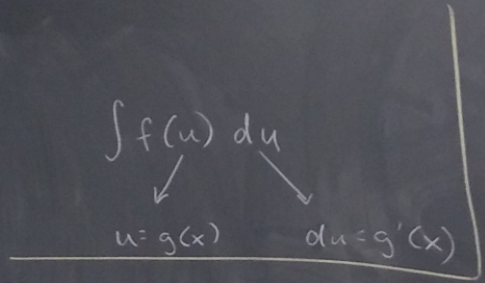 ∫ f(u) du
u = g(x) du = g'(x)